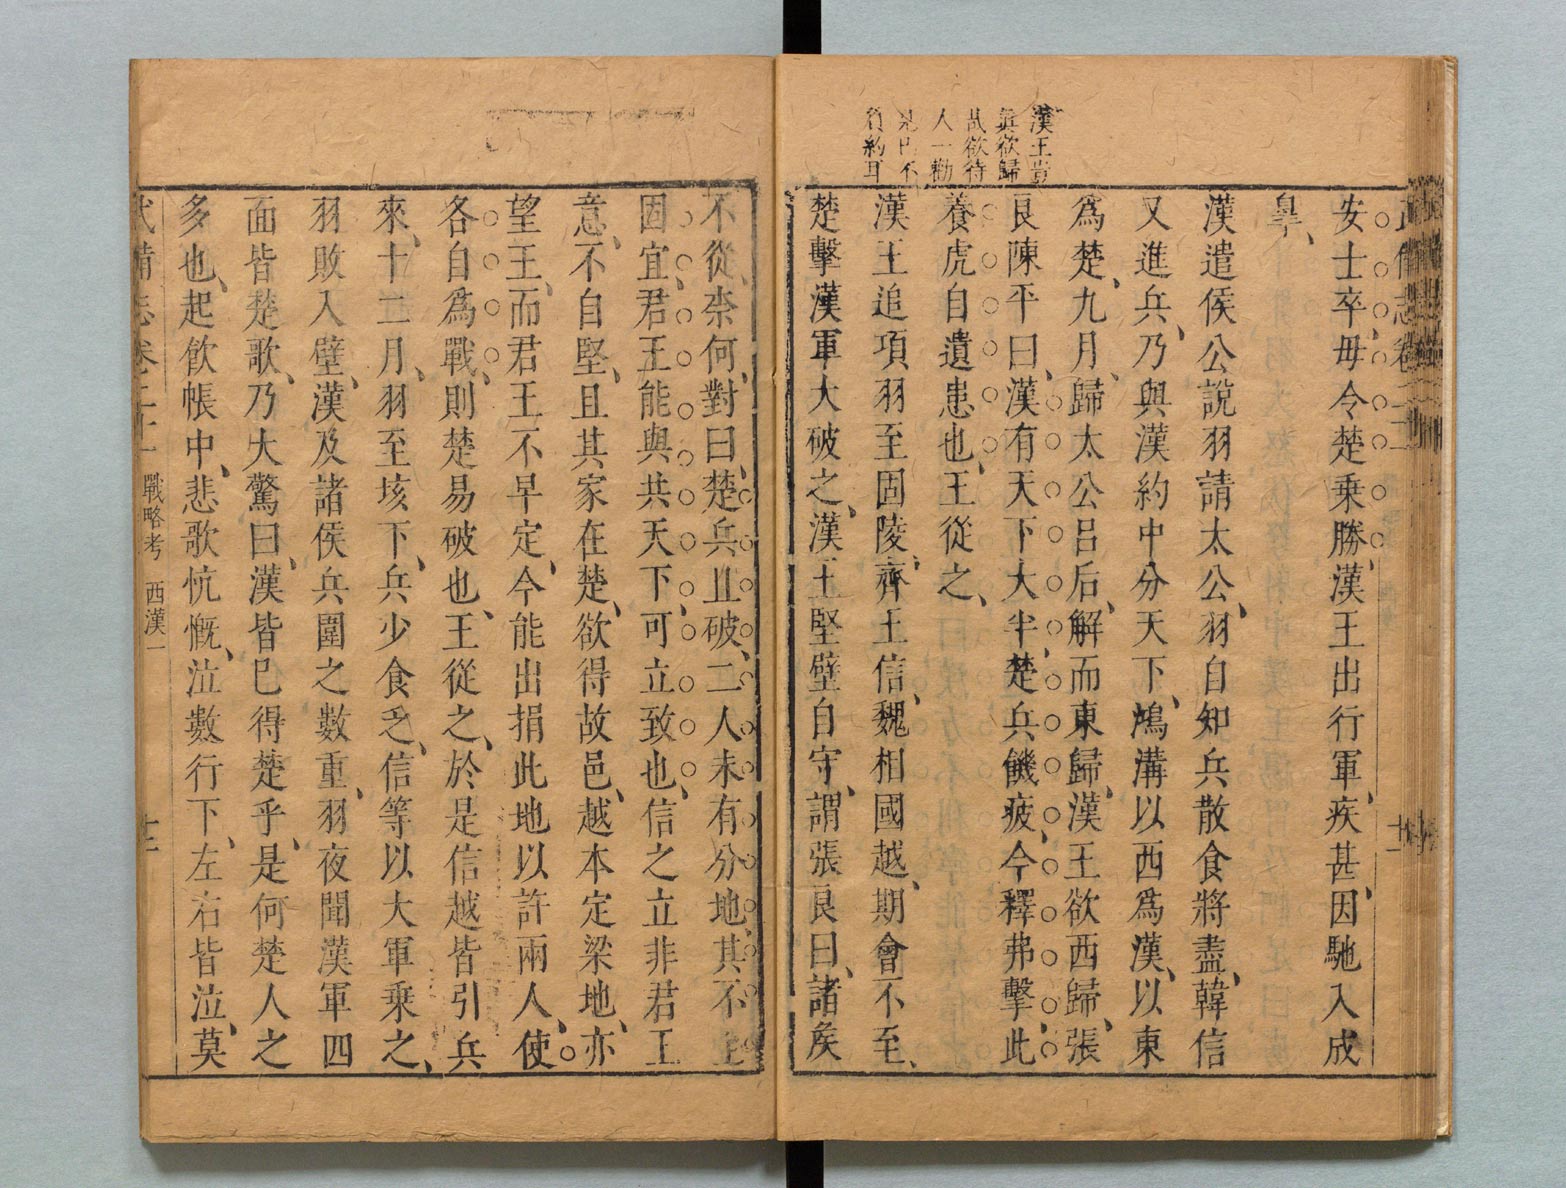 漢王豈
眞欲歸
哉欲待
人一勸
負約耳
安士卒、毋令楚乗勝、漢王出行軍、疾甚、因馳入成
臯、
漢遣侯公説羽請太公、羽自知兵散食將盡、韓信
又進兵、乃與漢約中分天下、鴻溝以西爲漢、以東
爲楚、九月、歸太公呂后、解而東歸、漢王欲西歸、張
良陳平曰、漢有天下大半、楚兵饑疲、今釋弗擊、此
養虎自遺患也、王從之、
漢王追項羽至固陵、齊王信、魏相國越、期會不至、
楚擊漢軍大破之、漢王堅壁自守、謂張良曰、諸矦
不從、柰何、對曰、楚兵且破、二人未有分地、其不至
固宜、君王能與共天下、可立致也、信之立非君王
意、不自堅、且其家在楚、欲得故邑、越本定梁地、亦
望王、而君王不早定、今能出捐此地以許兩人、使
各自爲戰、則楚易破也、王從之、於是信越皆引兵
來、十二月、羽至垓下、兵少食乏、信等以大軍乗之、
羽敗入壁、漢及諸侯兵圍之數重、羽夜聞漢軍四
面皆楚歌、乃大驚曰、漢皆巳得楚乎、是何楚人之
多也、起飲帳中、悲歌忼慨、泣數行下、左右皆泣、莫
武備志卷二十一 戰略考 西漢一 十二